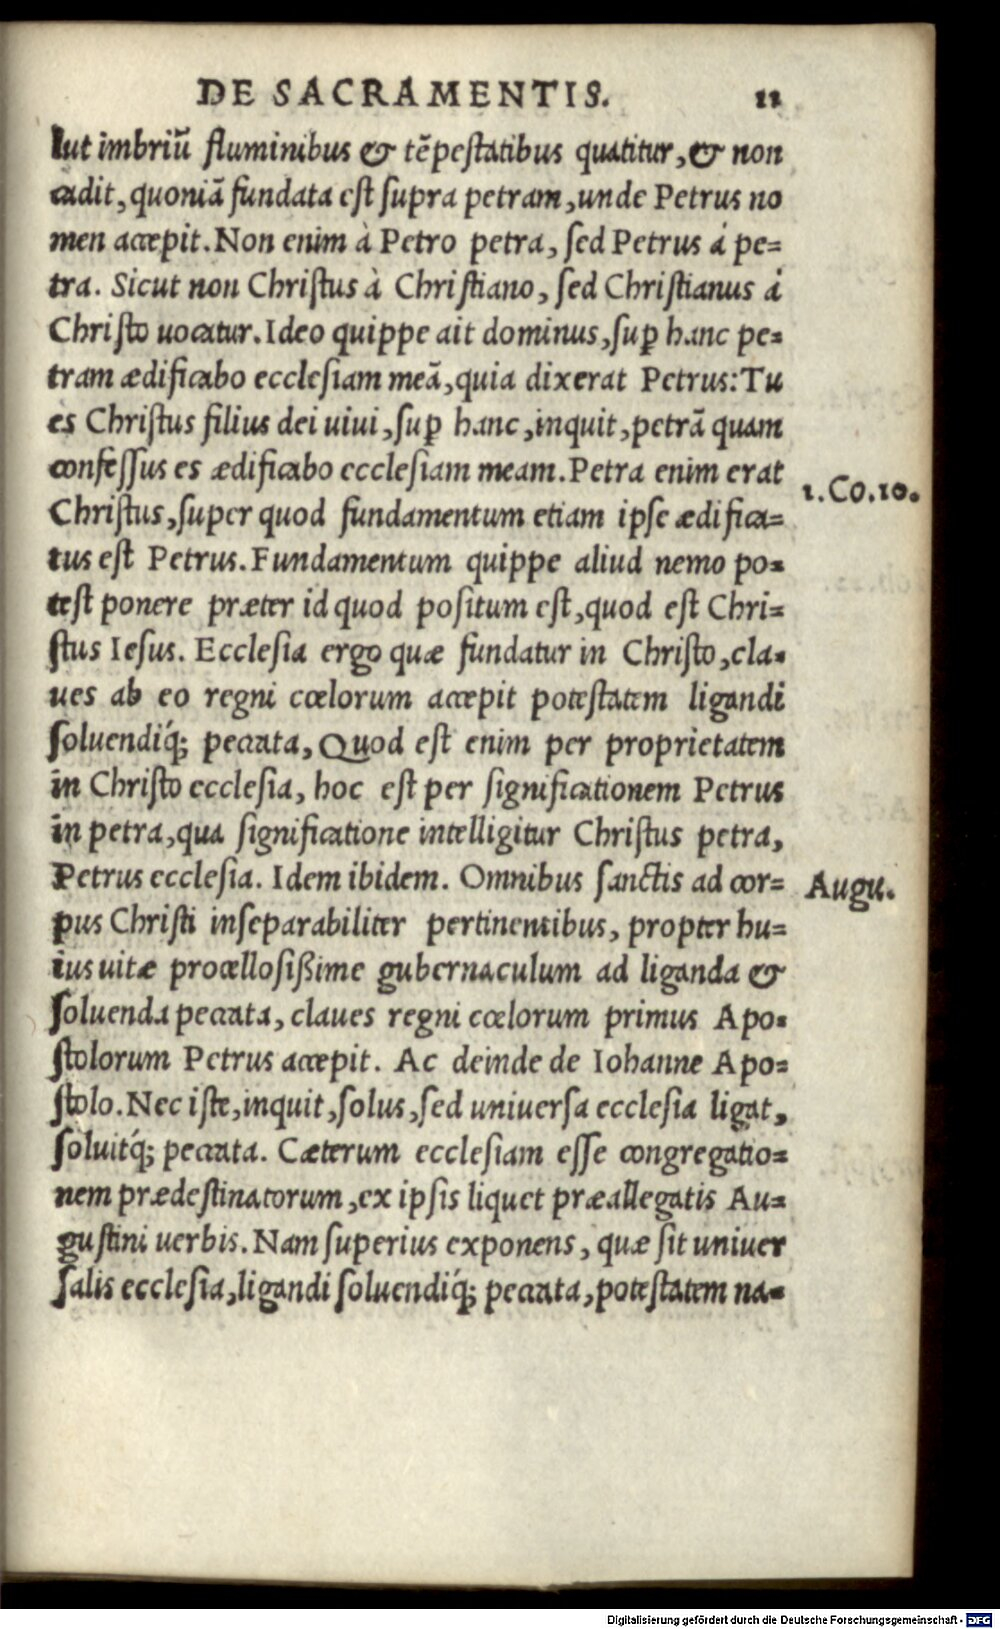 DE SACRAMENTIS. 11
lut imbriũ fluminibus & tẽpeſtatibus quatitur, & non
cadit, quoniã fundata eſt ſupra petram, unde Petrus no
men accepit. Non enim à Petro petra, ſed Petrus á pe=
tra. Sicut non Chriſtus à Chriſtiano, ſed Chriſtianus á
Chriſto uocatur. Ideo quippe ait dominus, ſuꝑ hanc pe=
tram ædificabo eccleſiam meã, quia dixerat Petrus: Tu
es Chriſtus filius dei uiui, ſuꝑ hanc, inquit, petrã quam
confeſſus es ædificabo eccleſiam meam. Petra enim erat
1. Co. 10.
Chriſtus, ſuper quod fundamentum etiam ipſe ædifica=
tus eſt Petrus. Fundamentum quippe aliud nemo po=
teſt ponere præter id quod poſitum eſt, quod eſt Chri=
ſtus Ieſus. Eccleſia ergo quæ fundatur in Chriſto, cla=
ues ab eo regni cœlorum accepit poteſtatem ligandi
ſoluendiq́; peccata, Quod eſt enim per proprietatem
in Chriſto eccleſia, hoc eſt per ſignificationem Petrus
in petra, qua ſignificatione intelligitur Chriſtus petra,
Petrus eccleſia. Idem ibidem. Omnibus ſanctis ad cor=
Augu.
pus Chriſti inſeparabiliter pertinentibus, propter hu=
ius uitæ procelloſißime gubernaculum ad liganda &
ſoluenda peccata, claues regni cœlorum primus Apo=
ſtolorum Petrus accepit. Ac deinde de Iohanne Apo=
ſtolo. Nec iſte, inquit, ſolus, ſed uniuerſa eccleſia ligat,
ſoluitq́; peccata. Cæterum eccleſiam eſſe congregatio=
nem prædeſtinatorum, ex ipſis liquet præallegatis Au=
guſtini uerbis. Nam ſuperius exponens, quæ ſit uniuer
ſalis eccleſia, ligandi ſoluendiq́; peccata, poteſtatem na=
Digitalisierung gefördert durch die Deutsche Forschungsgemeinschaft - DFG